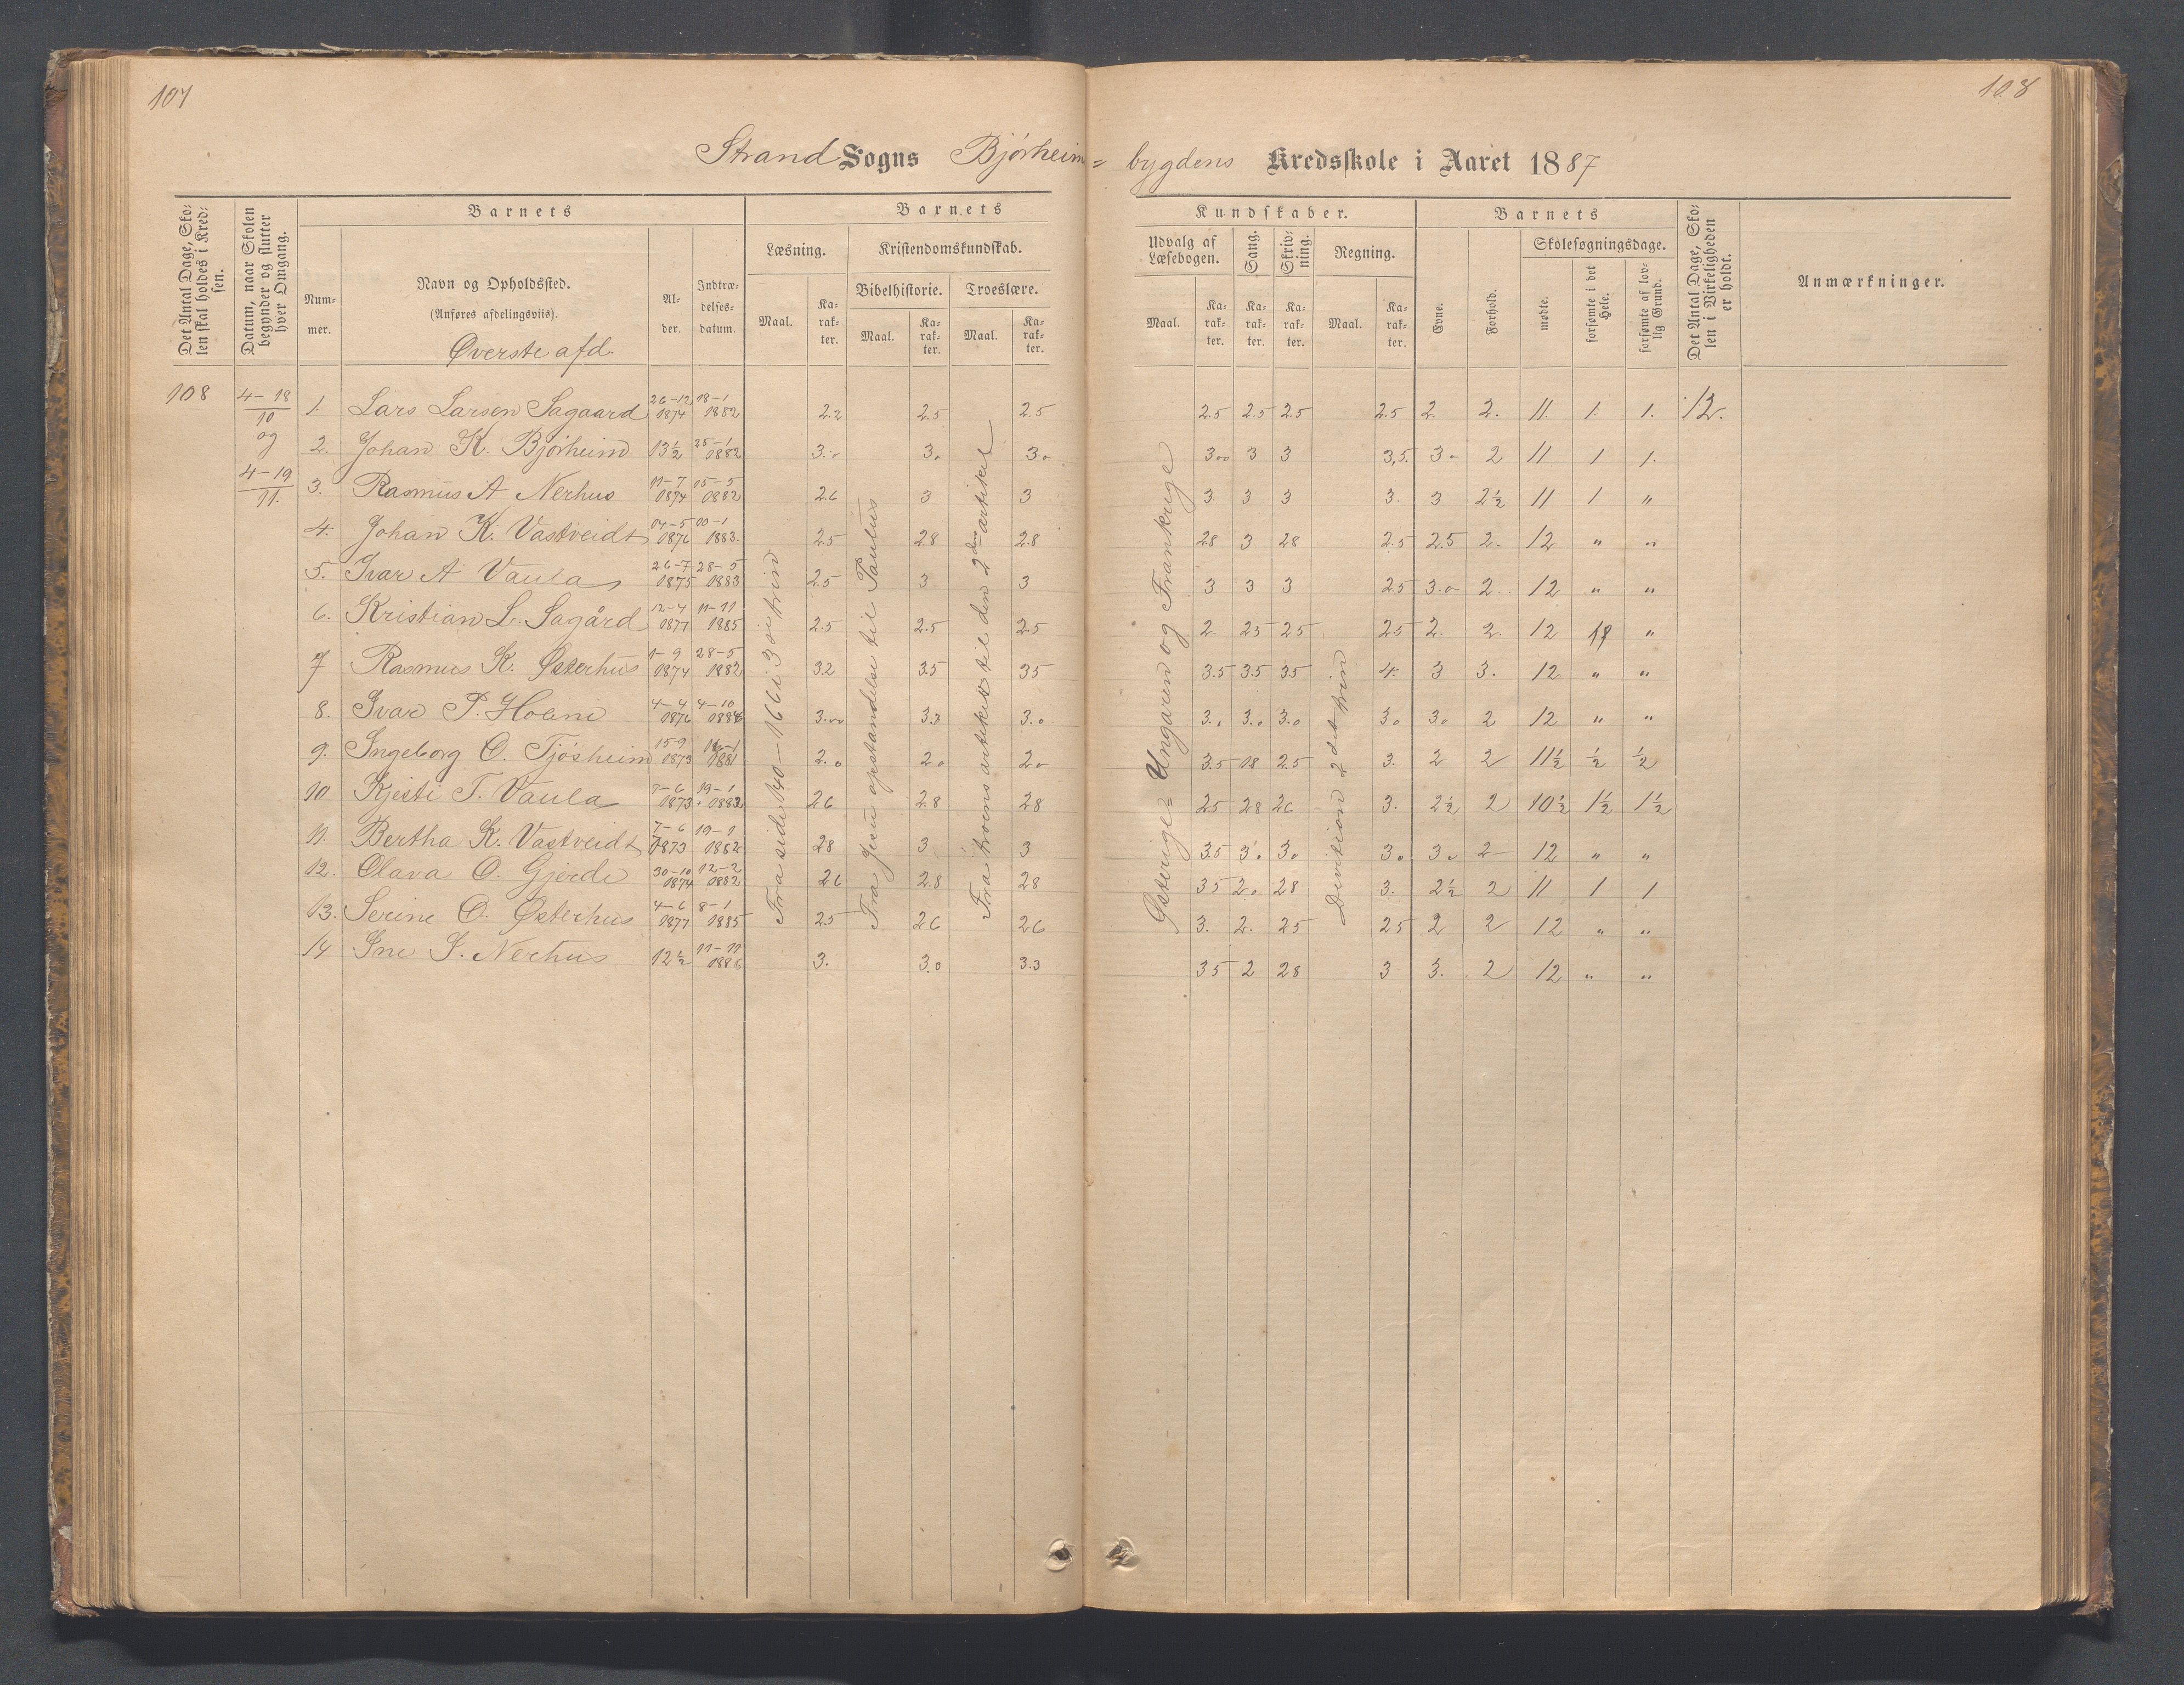 107
108
Strand Sogns Bjørheim=
bygdens Kredsskole i Aaret 1887
Det Antal Dage, Skolen skal holdes i Kredsen.
Datum, naar Skolen begynder og slutter hver Omgang.
Barnets
Nummer.
Navn og Opholdssted.
(Anføres afdelingsviis).
Øverste afd.
Alder.
Indtrædelsesdatum.
Barnets
Læsning.
Maal.
Karakter.
Kristendomskundskab.
Bibelhistorie.
Maal.
Karakter.
Troeslære.
Maal.
Karakter.
Kundskaber.
Udvalg af Læsebogen.
Maal.
Karakter.
Sang.
Karakter.
Skrivning.
Karakter.
Regning.
Maal.
Karakter.
Barnets
Evne.
Forhold.
Skolesøgningsdage.
mødte.
forsømte i det Hele.
forsømte af lovlig Grund.
Det Antal Dage, Skolen i Virkeligheden er holdt.
Anmærkninger.
108
4-18
10
og
4-19
11.
1. Lars Larsen Sagaard 26-12 1874 18-1 1882 2.2 2.5 2.5 2.5 2.5 2.5 2.5 2. 2. 11. 1. 1. 12.
2. Johan K. Bjørheim 13½ 25-1 1882 3.0 3.0 3.0 3.00 3 3 3,5. 3.0 2 11 1 1.
3. Rasmus A Nerhus 11-7 1874 15-5 1882 2.6 3 3 3. 3 3 3. 3 2½ 11 1 "
4. Johan K. Vastveidt 04-5 1876 1883. 2.5 2.8 2.8 2.8 3 28 2.5 2.5 2. 12 " "
5. Ivar A Vaula 26-7 1875 28-5 1883 2.5 3 3 3 3 3 2.5 3.0 2. 12 " "
6. Kristian L. Sagård 12-4 1877 11-11 1885 2.5 2.5 2.5 2. 25 25 25 2. 2. 12 "
7 Rasmus K. Østerhus 1-9 1874 28-5 1882 32 35 35 3.5 35 35 4. 3 3. 12 " "
8. Ivar P. Holem 4-4 1876 4-10 1884 3.00 3.3 3.0 3.0 3.0 3.0 3.0 3.0 2 12 " "
9. Ingeborg O. Tjøsheim 15-9 1873 1881 2.0 2.0 2.0 3.5 18 2.5 3. 2 2 11½ ½ ½
10 Kjesti T. Vaula 7-6 1873 19-1 1882 26 2.8 28 25 28 26 3. 2½ 2 10½ 1½ 1½
11. Bertha K. Vastveidt 7-6 1873 19-1 1882 28 3 3 35 3.0 3.0 3.0 3.0 2 12 " "
12. Olava O. Gjerde 30-10 1874 12-2 1882 26 2.8 28 35 2.0 28 3. 2½ 2 11 1 1
13. Serine O. Østerhus 4-6 1877 8-1 1885 25 26 26 3. 2. 25 25 2 2 12 " "
14 Ine S. Nerhus 12½ 11-11 1886 3. 3.0 3.3 35 2 28 3 3. 2 12 " "
Fra side 140-166 i 3die trin
Fra Jesu opstandelse til Paulus
Fra troens artikel til den 2den artikel
Østerige=Ungaren og Frankrige
Devision 2det trin